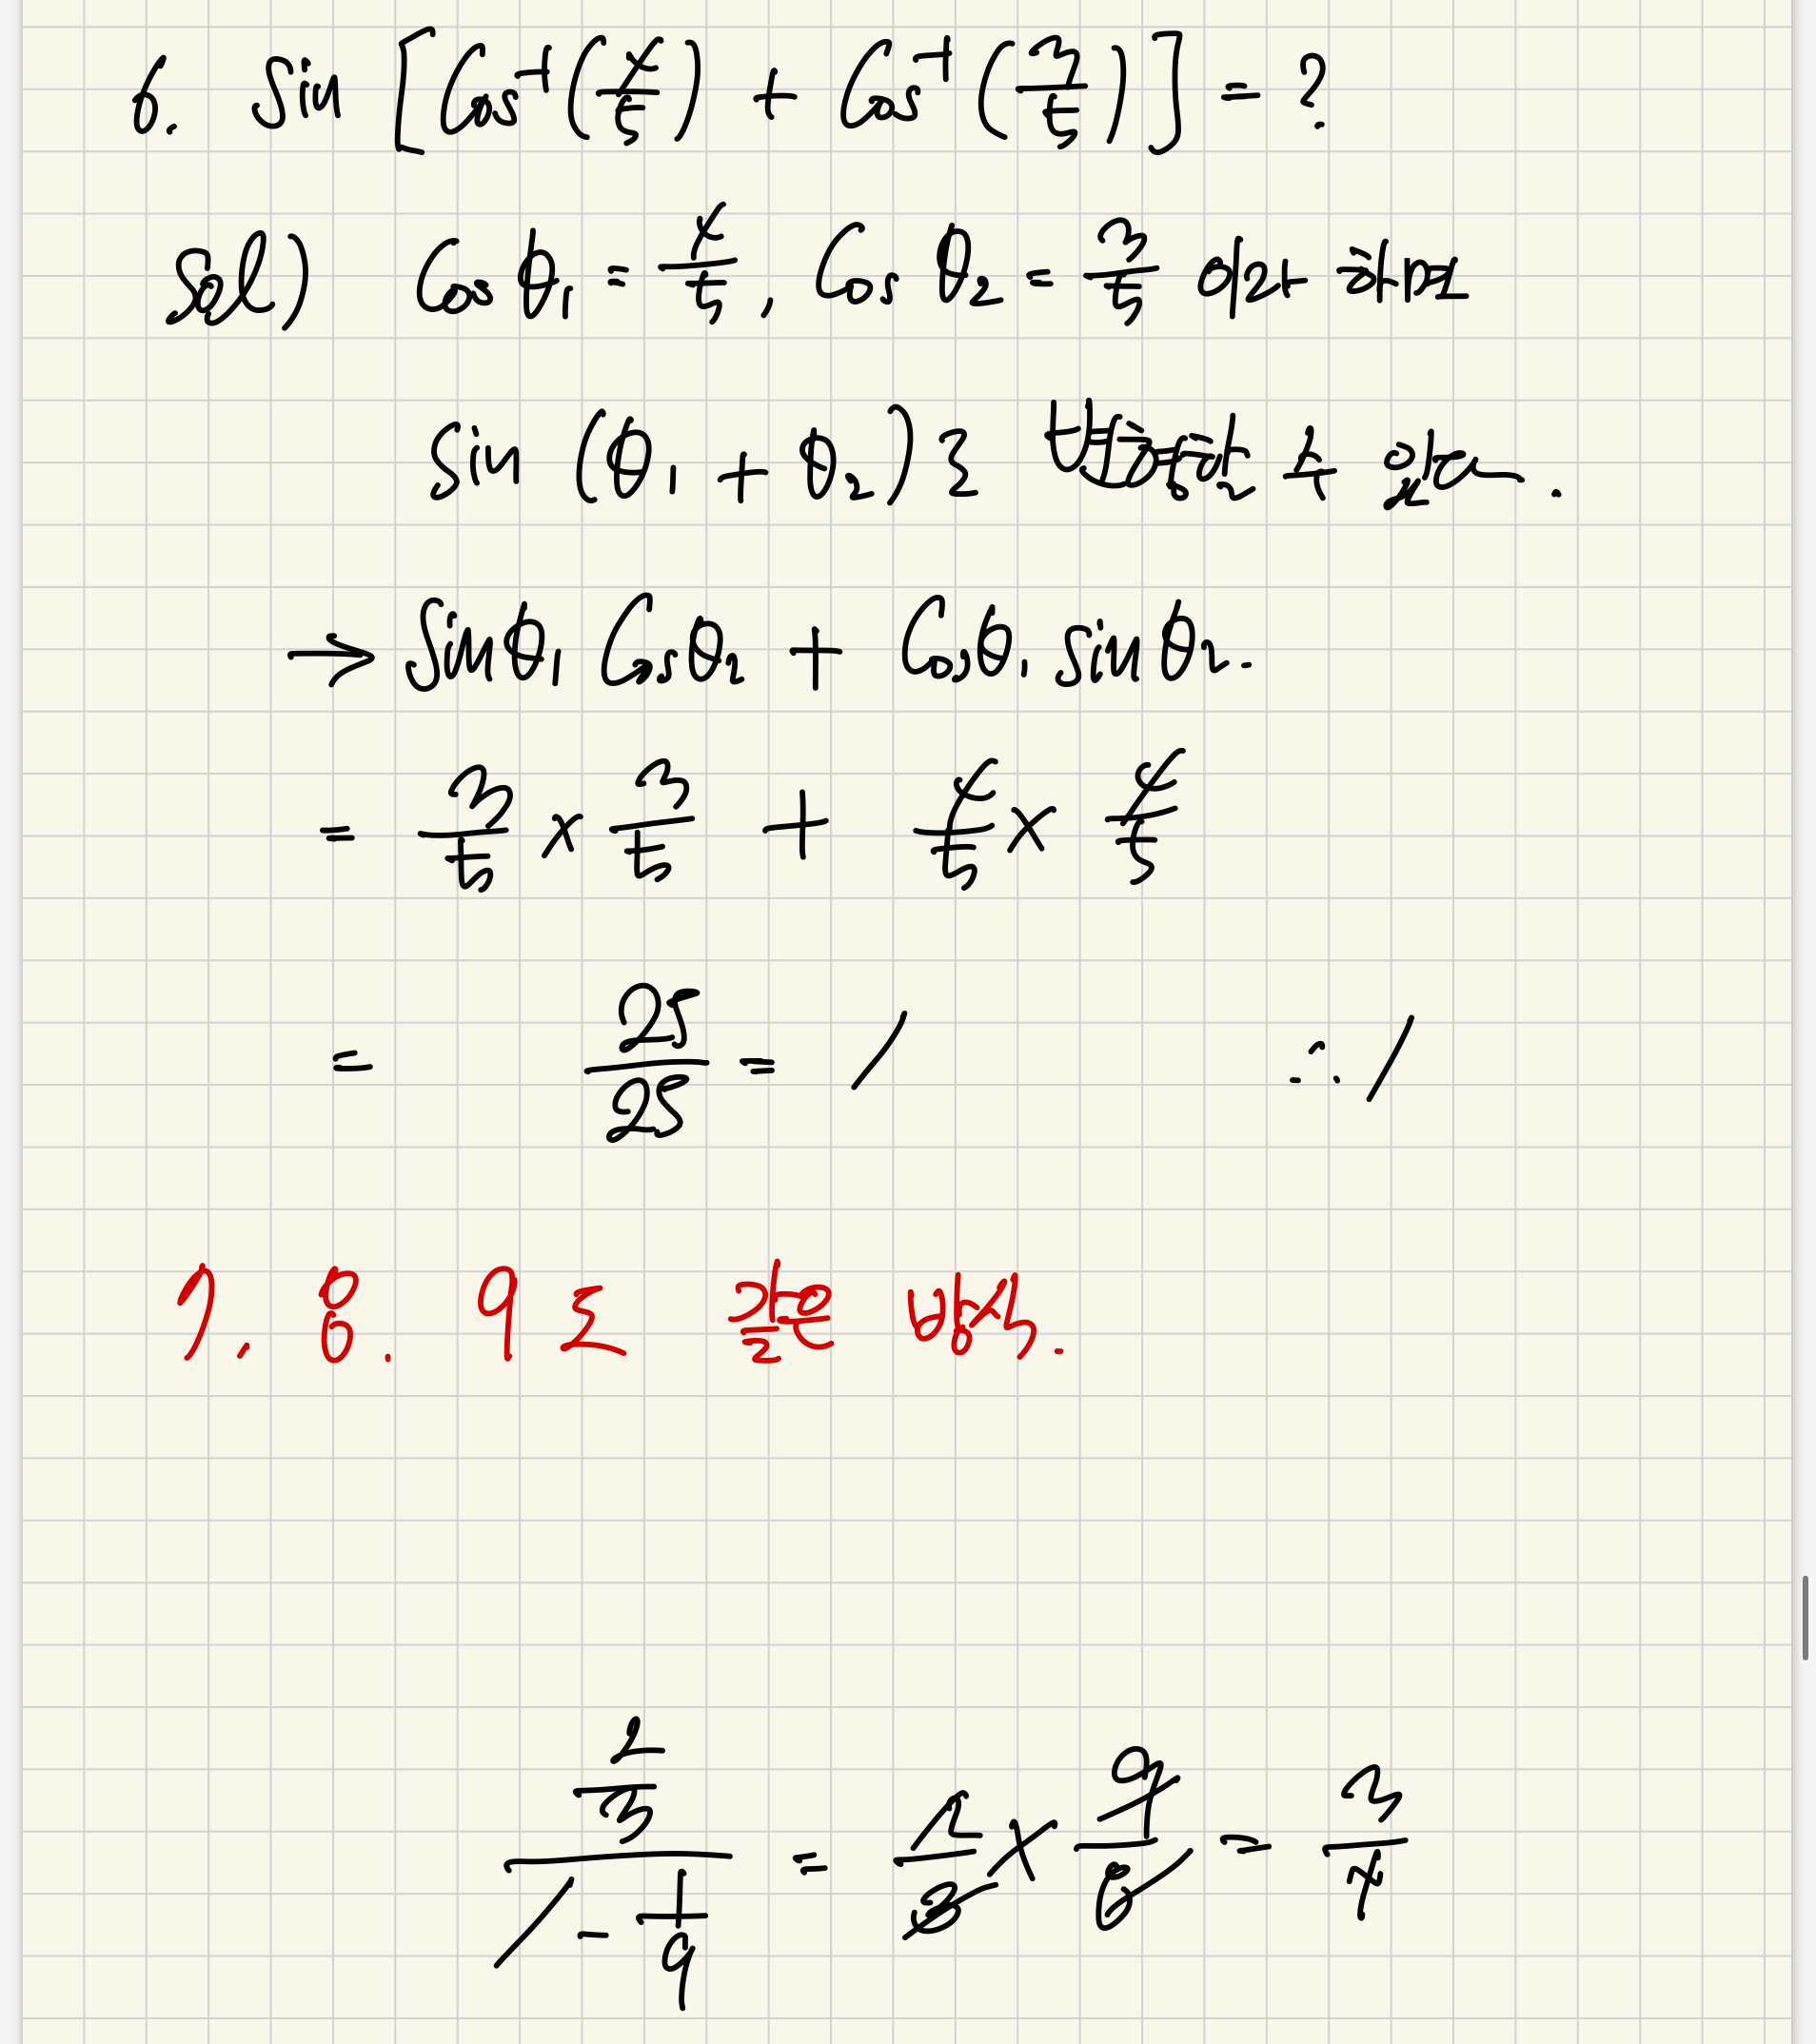 6. Sin [Cos⁻¹(4/5) + Cos⁻¹(3/5)] = ?
Sol) Cosθ₁ = 4/5, Cosθ₂ = 3/5 이라 하면
Sin (θ₁ + θ₂)로 변형할 수 있다.
→ Sinθ₁ Cosθ₂ + Cosθ₁ Sinθ₂.
= 3/5 × 3/5 + 4/5 × 4/5
= 25/25 = 1 ∴ 1
7. 8. 9도 같은 방식.
(2/3)/(1 - 1/9) = 2/3 × 9/8 = 3/4